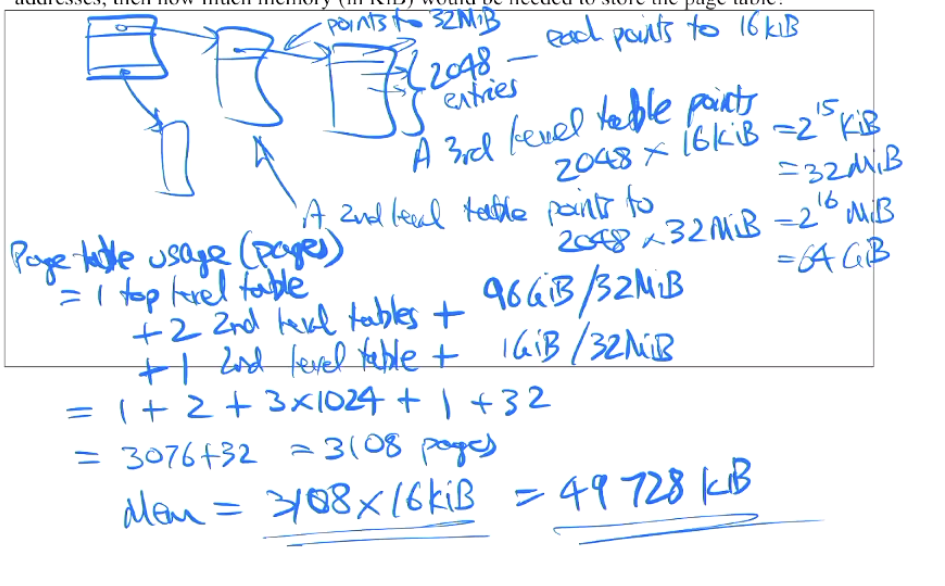 addresses, then how much memory (in KiB) would be needed to store the page table?
points to 32MiB
each points to 16kiB
2048 —
entries
A 3rd level table points
2048 × 16kiB = 2^15 KiB
= 32MiB
A 2nd level table points to
2048 × 32MiB = 2^16 MiB
= 64 GiB
Page table usage (pages)
= 1 top level table
+ 2 2nd level tables + 96GiB/32MiB
+ 1 2nd level table + 1GiB/32MiB
= 1 + 2 + 3×1024 + 1 + 32
= 3076+32 = 3108 pages
Mem = 3108×16kiB = 49 728 kiB